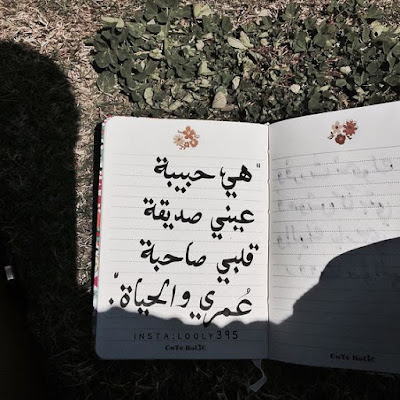 "هي حبيبة
عيني صديقة
قلبي صاحبة
عُمري والحياة".
INSTA:LOOLY395
CUTE NOTIC
CUTE NOTIC